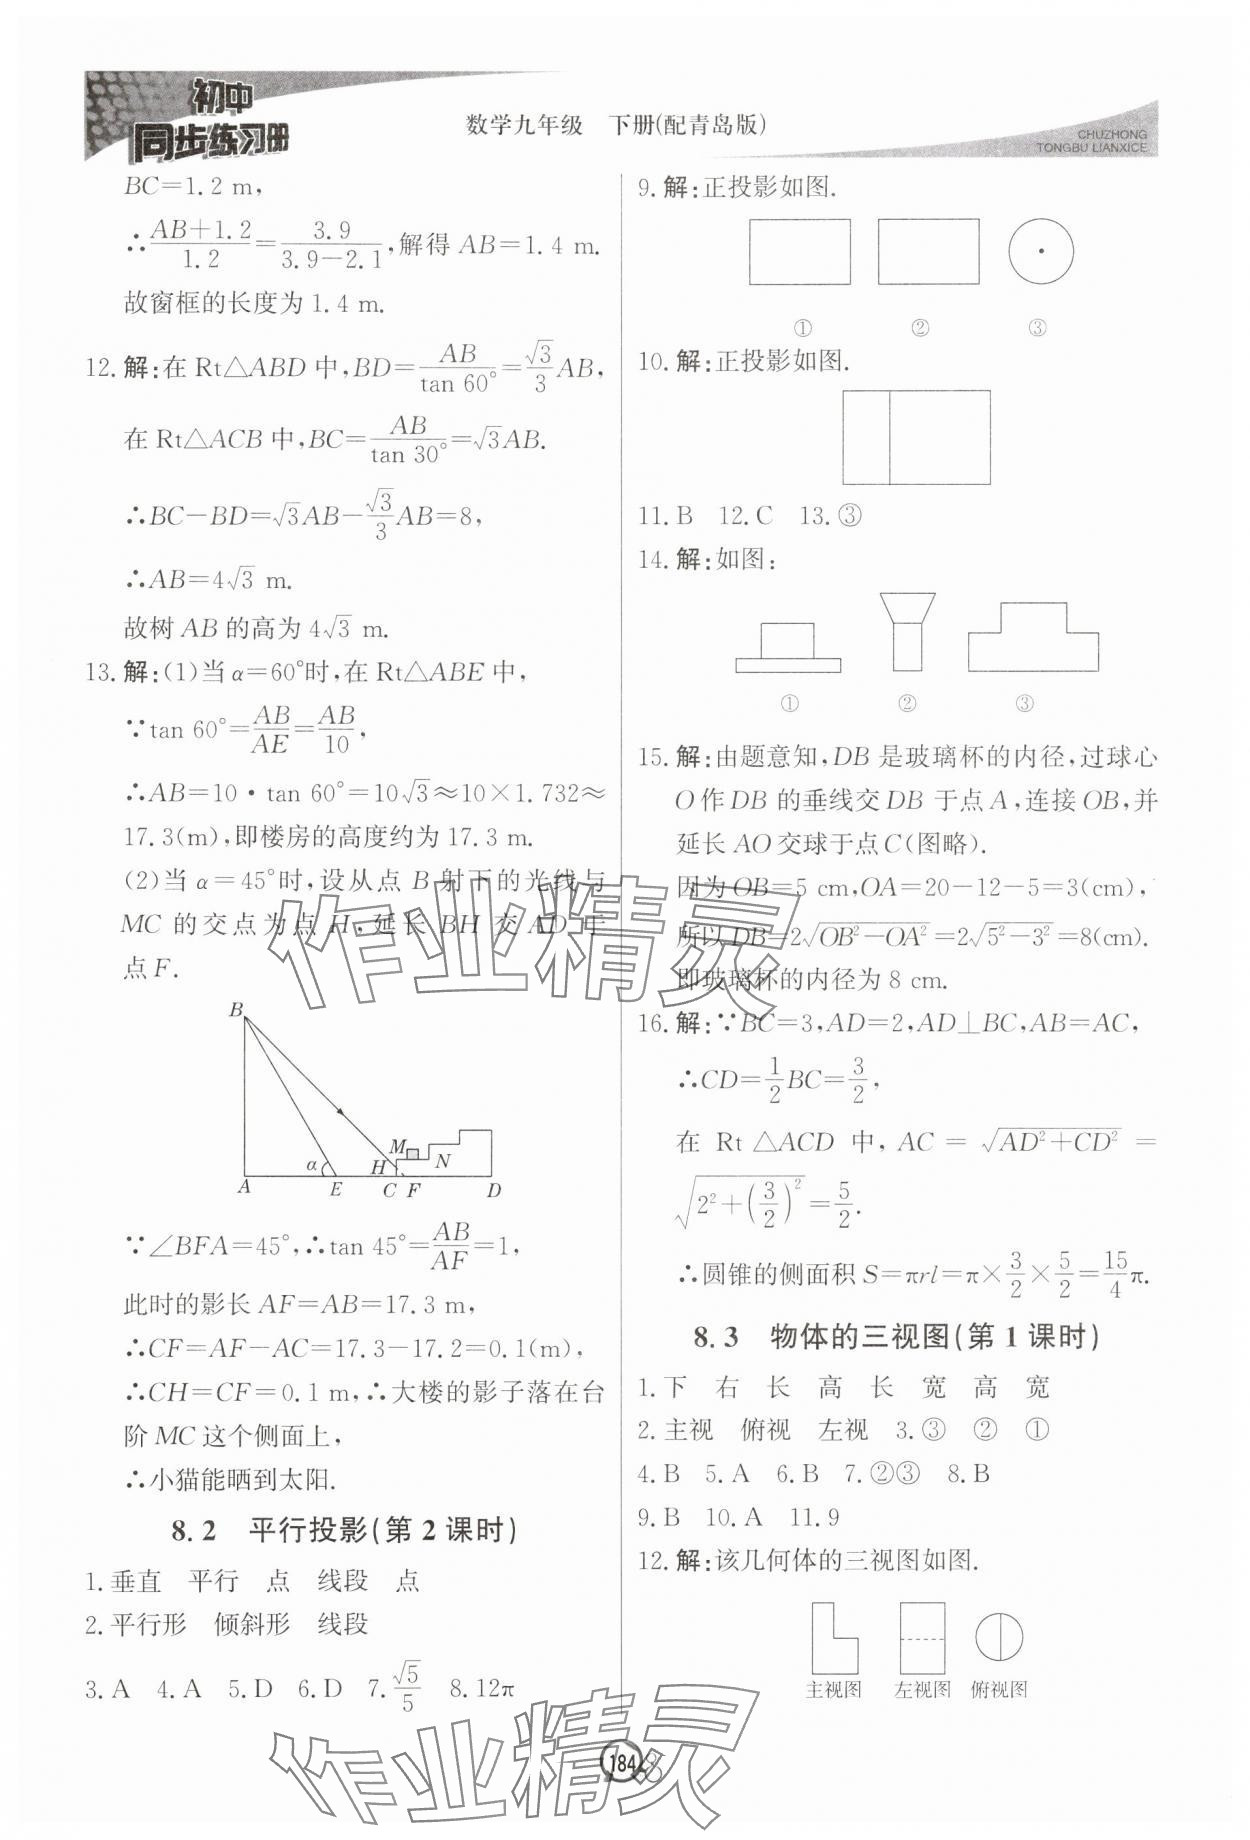 初中
同步练习册
数学九年级 下册(配青岛版)
CHUZHONG
TONGBU LIANXICE
BC=1.2 m,
∴(AB+1.2)/1.2=3.9/(3.9-2.1),解得 AB=1.4 m.
故窗框的长度为 1.4 m.
12.解:在 Rt△ABD 中,BD=AB/tan 60°=√3/3 AB,
在 Rt△ACB 中,BC=AB/tan 30°=√3AB.
∴BC-BD=√3AB-√3/3 AB=8,
∴AB=4√3 m.
故树 AB 的高为 4√3 m.
13.解:(1)当 α=60°时,在 Rt△ABE 中,
∵tan 60°=AB/AE=AB/10,
∴AB=10·tan 60°=10√3≈10×1.732≈
17.3(m),即楼房的高度约为 17.3 m.
(2)当 α=45°时,设从点 B 射下的光线与
MC 的交点为点 H,延长 BH 交 AD 于
点 F.
B
M
N
α
H
A E C F D
∵∠BFA=45°,∴tan 45°=AB/AF=1,
此时的影长 AF=AB=17.3 m,
∴CF=AF-AC=17.3-17.2=0.1(m),
∴CH=CF=0.1 m,∴大楼的影子落在台
阶 MC 这个侧面上,
∴小猫能晒到太阳.
8.2 平行投影(第 2 课时)
1.垂直 平行 点 线段 点
2.平行形 倾斜形 线段
3.A 4.A 5.D 6.D 7.√5/5 8.12π
9.解:正投影如图.
① ② ③
10.解:正投影如图.
11.B 12.C 13.③
14.解:如图:
① ② ③
15.解:由题意知,DB 是玻璃杯的内径,过球心
O 作 DB 的垂线交 DB 于点 A,连接 OB,并
延长 AO 交球于点 C(图略).
因为 OB=5 cm,OA=20-12-5=3(cm),
所以 DB=2√(OB²-OA²)=2√(5²-3²)=8(cm).
即玻璃杯的内径为 8 cm.
16.解:∵BC=3,AD=2,AD⊥BC,AB=AC,
∴CD=1/2 BC=3/2,
在 Rt △ACD 中, AC = √(AD²+CD²) =
√(2²+(3/2)²)=5/2.
∴圆锥的侧面积 S=πrl=π×3/2×5/2=15/4 π.
8.3 物体的三视图(第 1 课时)
1.下 右 长 高 长 宽 高 宽
2.主视 俯视 左视 3.③ ② ①
4.B 5.A 6.B 7.②③ 8.B
9.B 10.A 11.9
12.解:该几何体的三视图如图.
主视图 左视图 俯视图
184
作业精灵
作业精灵